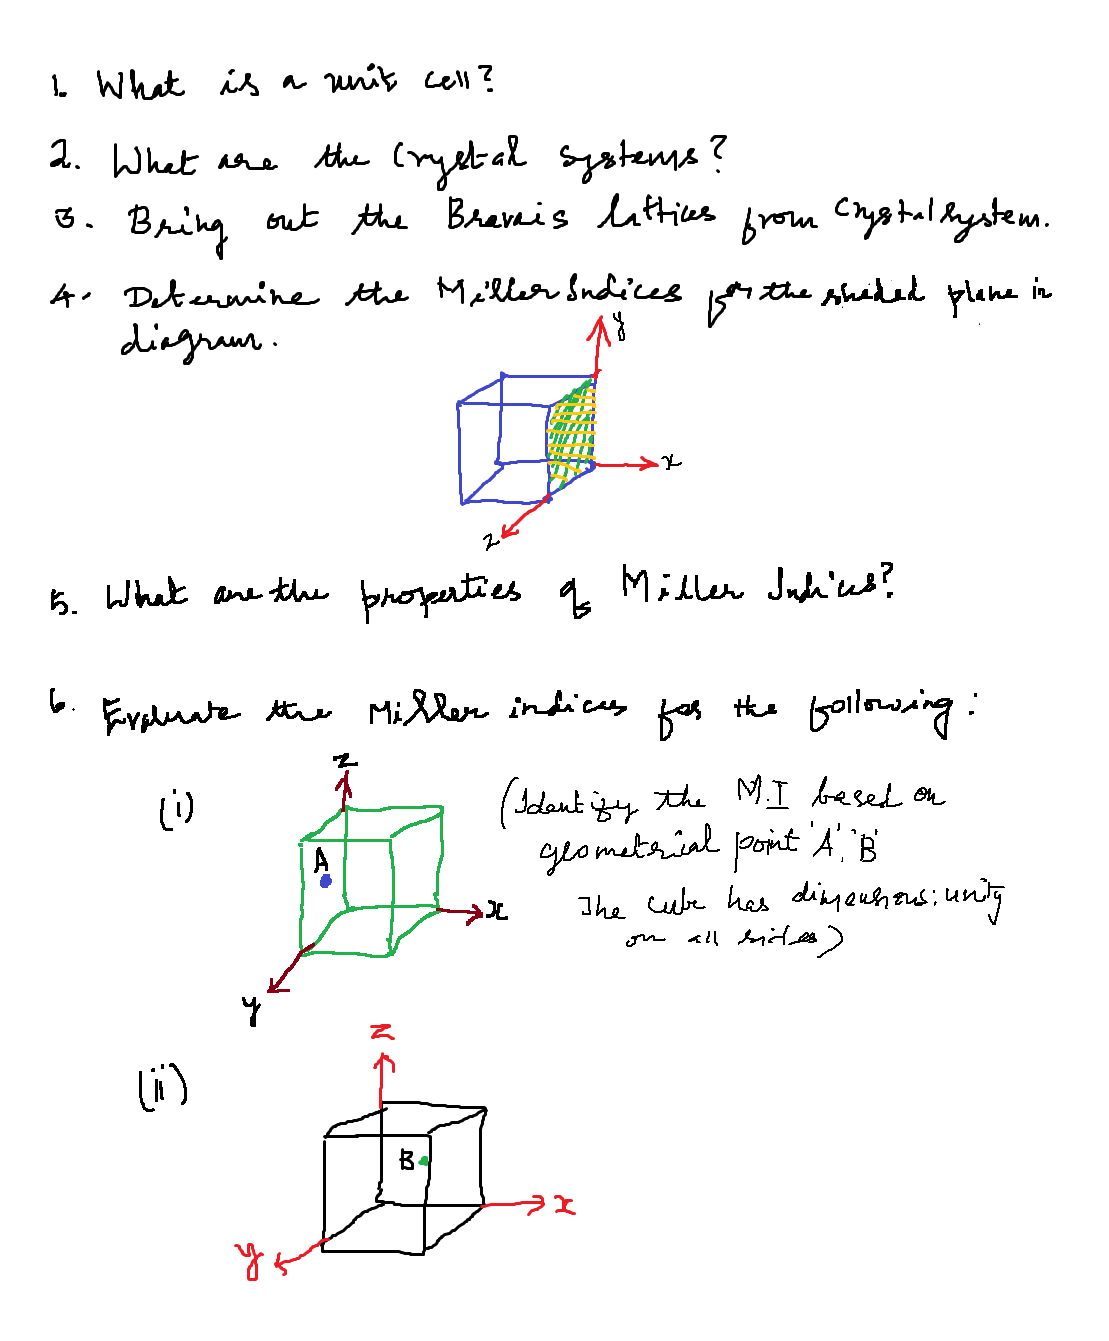 1. What is a unit cell?
2. What are the Crystal systems?
3. Bring out the Bravais lattices from Crystal system.
4. Determine the Miller Indices for the shaded plane in
diagram.
y
x
z
5. What are the properties of Miller Indices?
6. Evaluate the Miller indices for the following:
z
(i)
(Identify the M.I based on
geometrical point 'A', 'B'
A
The cube has dimensions: unity
x
on all sides)
y
z
(ii)
B
x
y